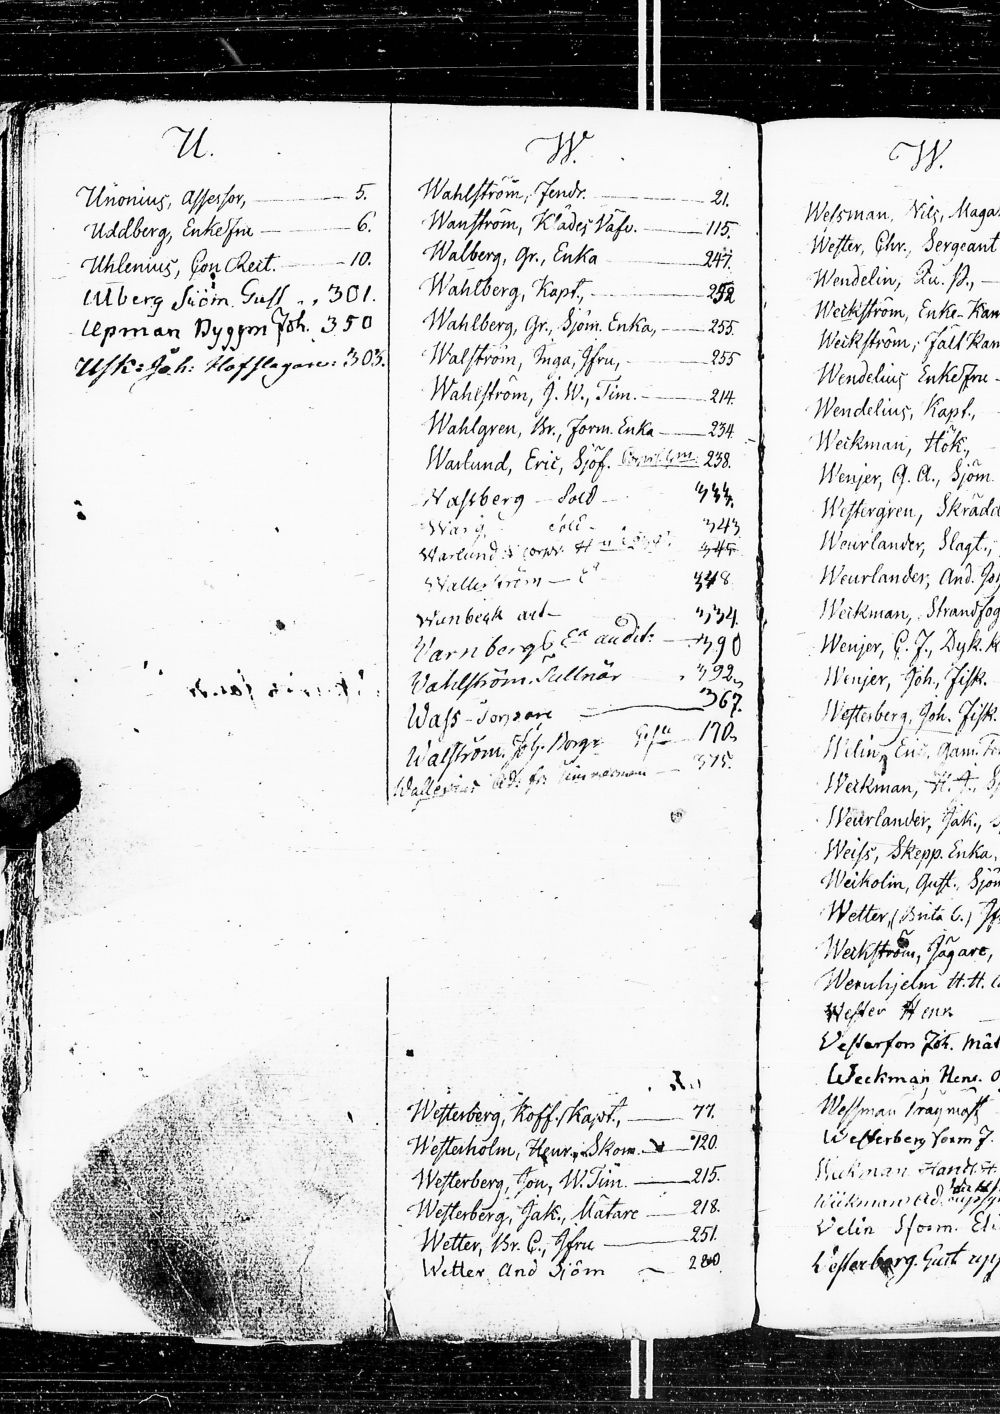 U.
Unonius, Assessor, 5.
Uddberg, Enkefru 6.
Uhlenius, Con Reit. 10.
Ulberg Siöm. Gust 301.
Upman Byggm Joh. 350
Usk: Joh: Hofslagare: 303.
W.
Wahlström, Fendr. 21.
Wanström, Klädes Väfv. 115.
Walberg, Gr., Enka 247.
Wahlberg, Kapt., 252
Wahlberg, Gr., Sjöm. Enka, 255.
Walström, Inga, Jfru, 255
Wahlström, J. W., Tim. 214.
Wahlgren, Br., Form. Enka 234.
Warlund, Eric, Sjöf. 238.
Wassberg Sold 333.
Warg Sold 343
Warlund 345
Wallerström 348
Wunbeck art 334.
Varnberg Ea audit: 390
Wahlström. Tullnär 392.
Wass 367.
Walström. Joh. Borgr 170.
Wallerius Timmerman 375.
Westerberg, Koff. Kapt., 77.
Westerholm, Henr., Skom. 120.
Westerberg, Jon, W. Tim. 215.
Westerberg, Jak., Mätare 218.
Wetter, Br. C., Jfru 251.
Wetter And Siöm 280
W.
Welsman, Nils, Maga
Wester, Chr., Sergeant
Wendelin, Qu. P.,
Weckström, Enke-Kam
Weckström, Fält Kam
Wendelius Enkefru
Wendelius, Kapt.,
Weckman, Hök.,
Wenjer, G. A., Sjöm.
Westergren, Skrädd
Weurlander, Slagt.,
Weurlander, And. Joh
Weckman, Strandfog
Wenjer, C. J., Dyk. K
Wenjer, Joh., Fisk.
Westerberg, Joh. Fisk.
Welin, Eric, Gam.
Weckman, H. A., Sj
Weurlander, Jak.,
Weiss, Skepp. Enka,
Weikolin, Gust., Sjöm
Wetter, (Brita C.) Jf
Weckström, Jägare,
Wernhjelm H. H.
Wester Henr.
Vesterfors Joh. Mät
Weckman, Henr.
Wessman Dragmast
Westerberg Form J.
Wickman Handl. H.
Wickman Ad.
Velin Sform. Eli
Vesterberg. Gust upp